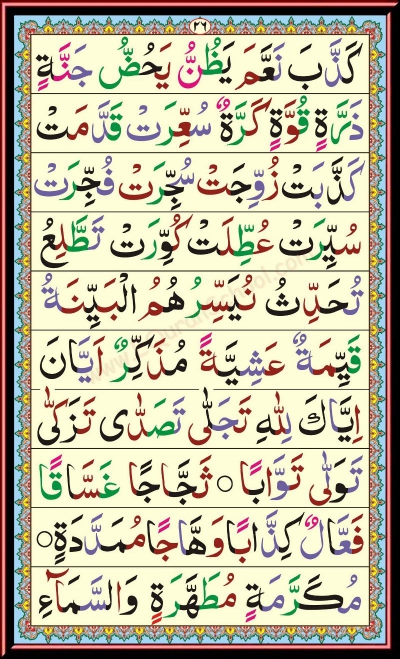 ٢٦
كَذَّبَ نَعَّمَ يَظُنُّ يَحُضُّ جَنَّةٍ
ذَرَّةٍ قُوَّةٍ كَرَّةٌ سُعِّرَتْ قَدَّمَتْ
كَذَّبَتْ زُوِّجَتْ سُجِّرَتْ فُجِّرَتْ
سُيِّرَتْ عُطِّلَتْ كُوِّرَتْ تَطَّلِعُ
تُحَدِّثُ نُيَسِّرُ هُمُ الْبَيِّنَةُ
قَيِّمَةٌ عَشِيَّةً مُذَكِّرٌ اَيَّانَ
اِيَّاكَ لِلّٰهِ تَجَلّٰى تَصَدّٰى تَزَكّٰى
تَوَلّٰى تَوَّابًا ○ ثَجَّاجًا غَسَّاقًا
فَعَّالٌ كِذَّابًا وَهَّاجًا مُمَدَّدَةٍ ○
مُكَرَّمَةٍ مُطَهَّرَةٍ وَالسَّمَآءِ